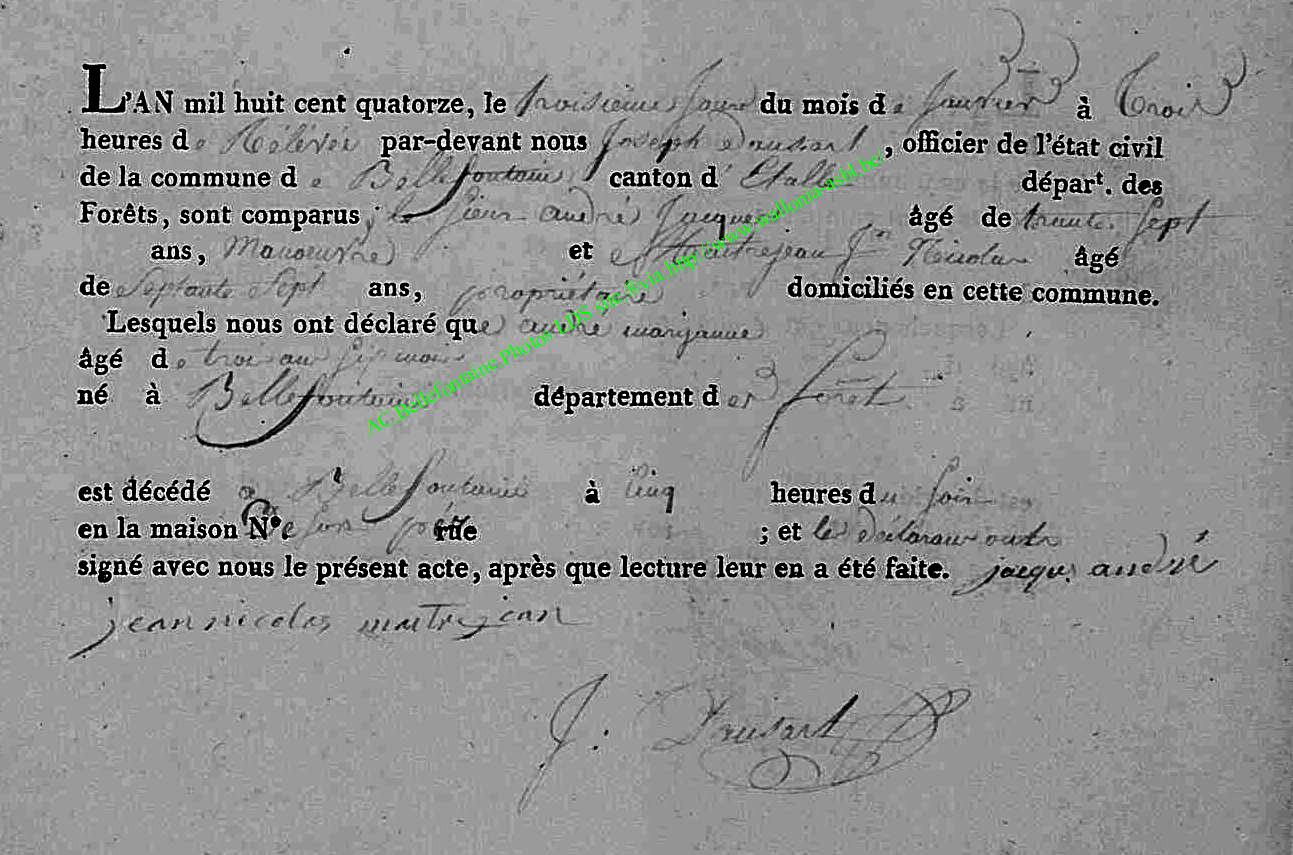 L'AN mil huit cent quatorze, le troisieme jour du mois de Janvier à trois
heures de Rélevée par-devant nous Joseph Dausart, officier de l'état civil
de la commune de Bellefontaine canton d'Etalle départ. des
Forêts, sont comparus le Sieur andré Jacque âgé de trente Sept
ans, Manoeuvre et Jn Nicolas âgé
de Septante Sept ans, propriétaire domiciliés en cette commune.
Lesquels nous ont déclaré que andré marjanne
âgé de trois ans six mois
né à Bellefontaine département des forêt
est décédé a Bellefontaine à cinq heures du soir
en la maison N° de son père rue ; et les déclarans ont
signé avec nous le présent acte, après que lecture leur en a été faite. jacque andré
jean nicolas maitrejean
J. Dausart
AC Bellefontaine Photos LDS site Evin http://www.wallonia-asbl.be/